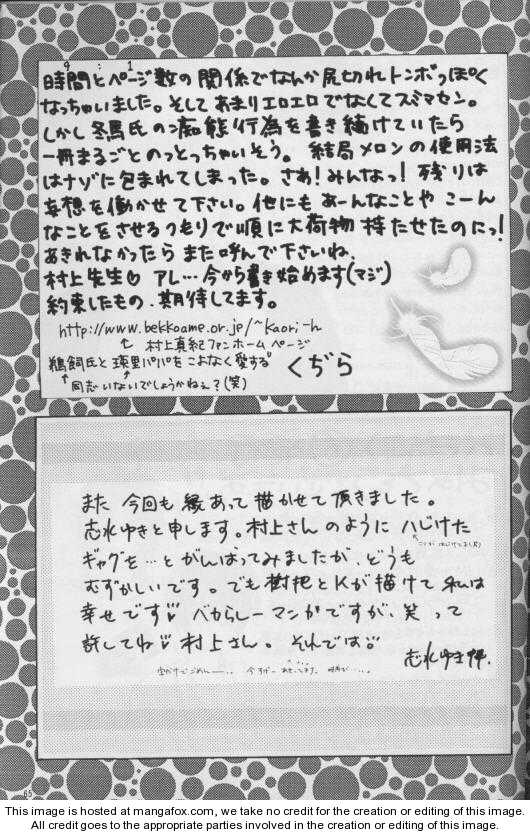 時間とページ数の関係でなんか尻切れトンボっぽく
なっちゃいました。そしてあまりエロエロでなくてスミマセン。
しかし冬馬氏の痴態行為を書き続けていたら
一冊まるごとのっとっちゃいそう。結局メロンの使用法
はナゾに包まれてしまった。さあ!みんなっ!残りは
妄想を働かせて下さい。他にもあーんなことや こーん
なことをさせるつもりで順に大荷物 持たせたのにっ!
あきれなかったら また呼んで下さいね。
村上先生♡ アレ…今から書き始めます(マジ)
約束したもの、期待してます。
http://www.bekkoame.or.jp/~kaori-h
村上真紀ファンホームページ
鵜飼氏と瑛里パパをこよなく愛する。
くぢら
↑同志いないでしょうかねぇ?(笑)
また 今回も 縁あって描かせて頂きました。
志水ゆきと申します。村上さんのように ハじけた
ギャグを…とがんばってみましたが、どうも
むずかしいです。でも樹把とKが描けて 私は
幸せです♡ バカらしーマンガですが、笑って
許してね♡ 村上さん。それでは。
志水ゆき拝.
65
This image is hosted at mangafox.com, we take no credit for the creation or editing of this image.
All credit goes to the appropriate parties involved in the creation or editing of this image.